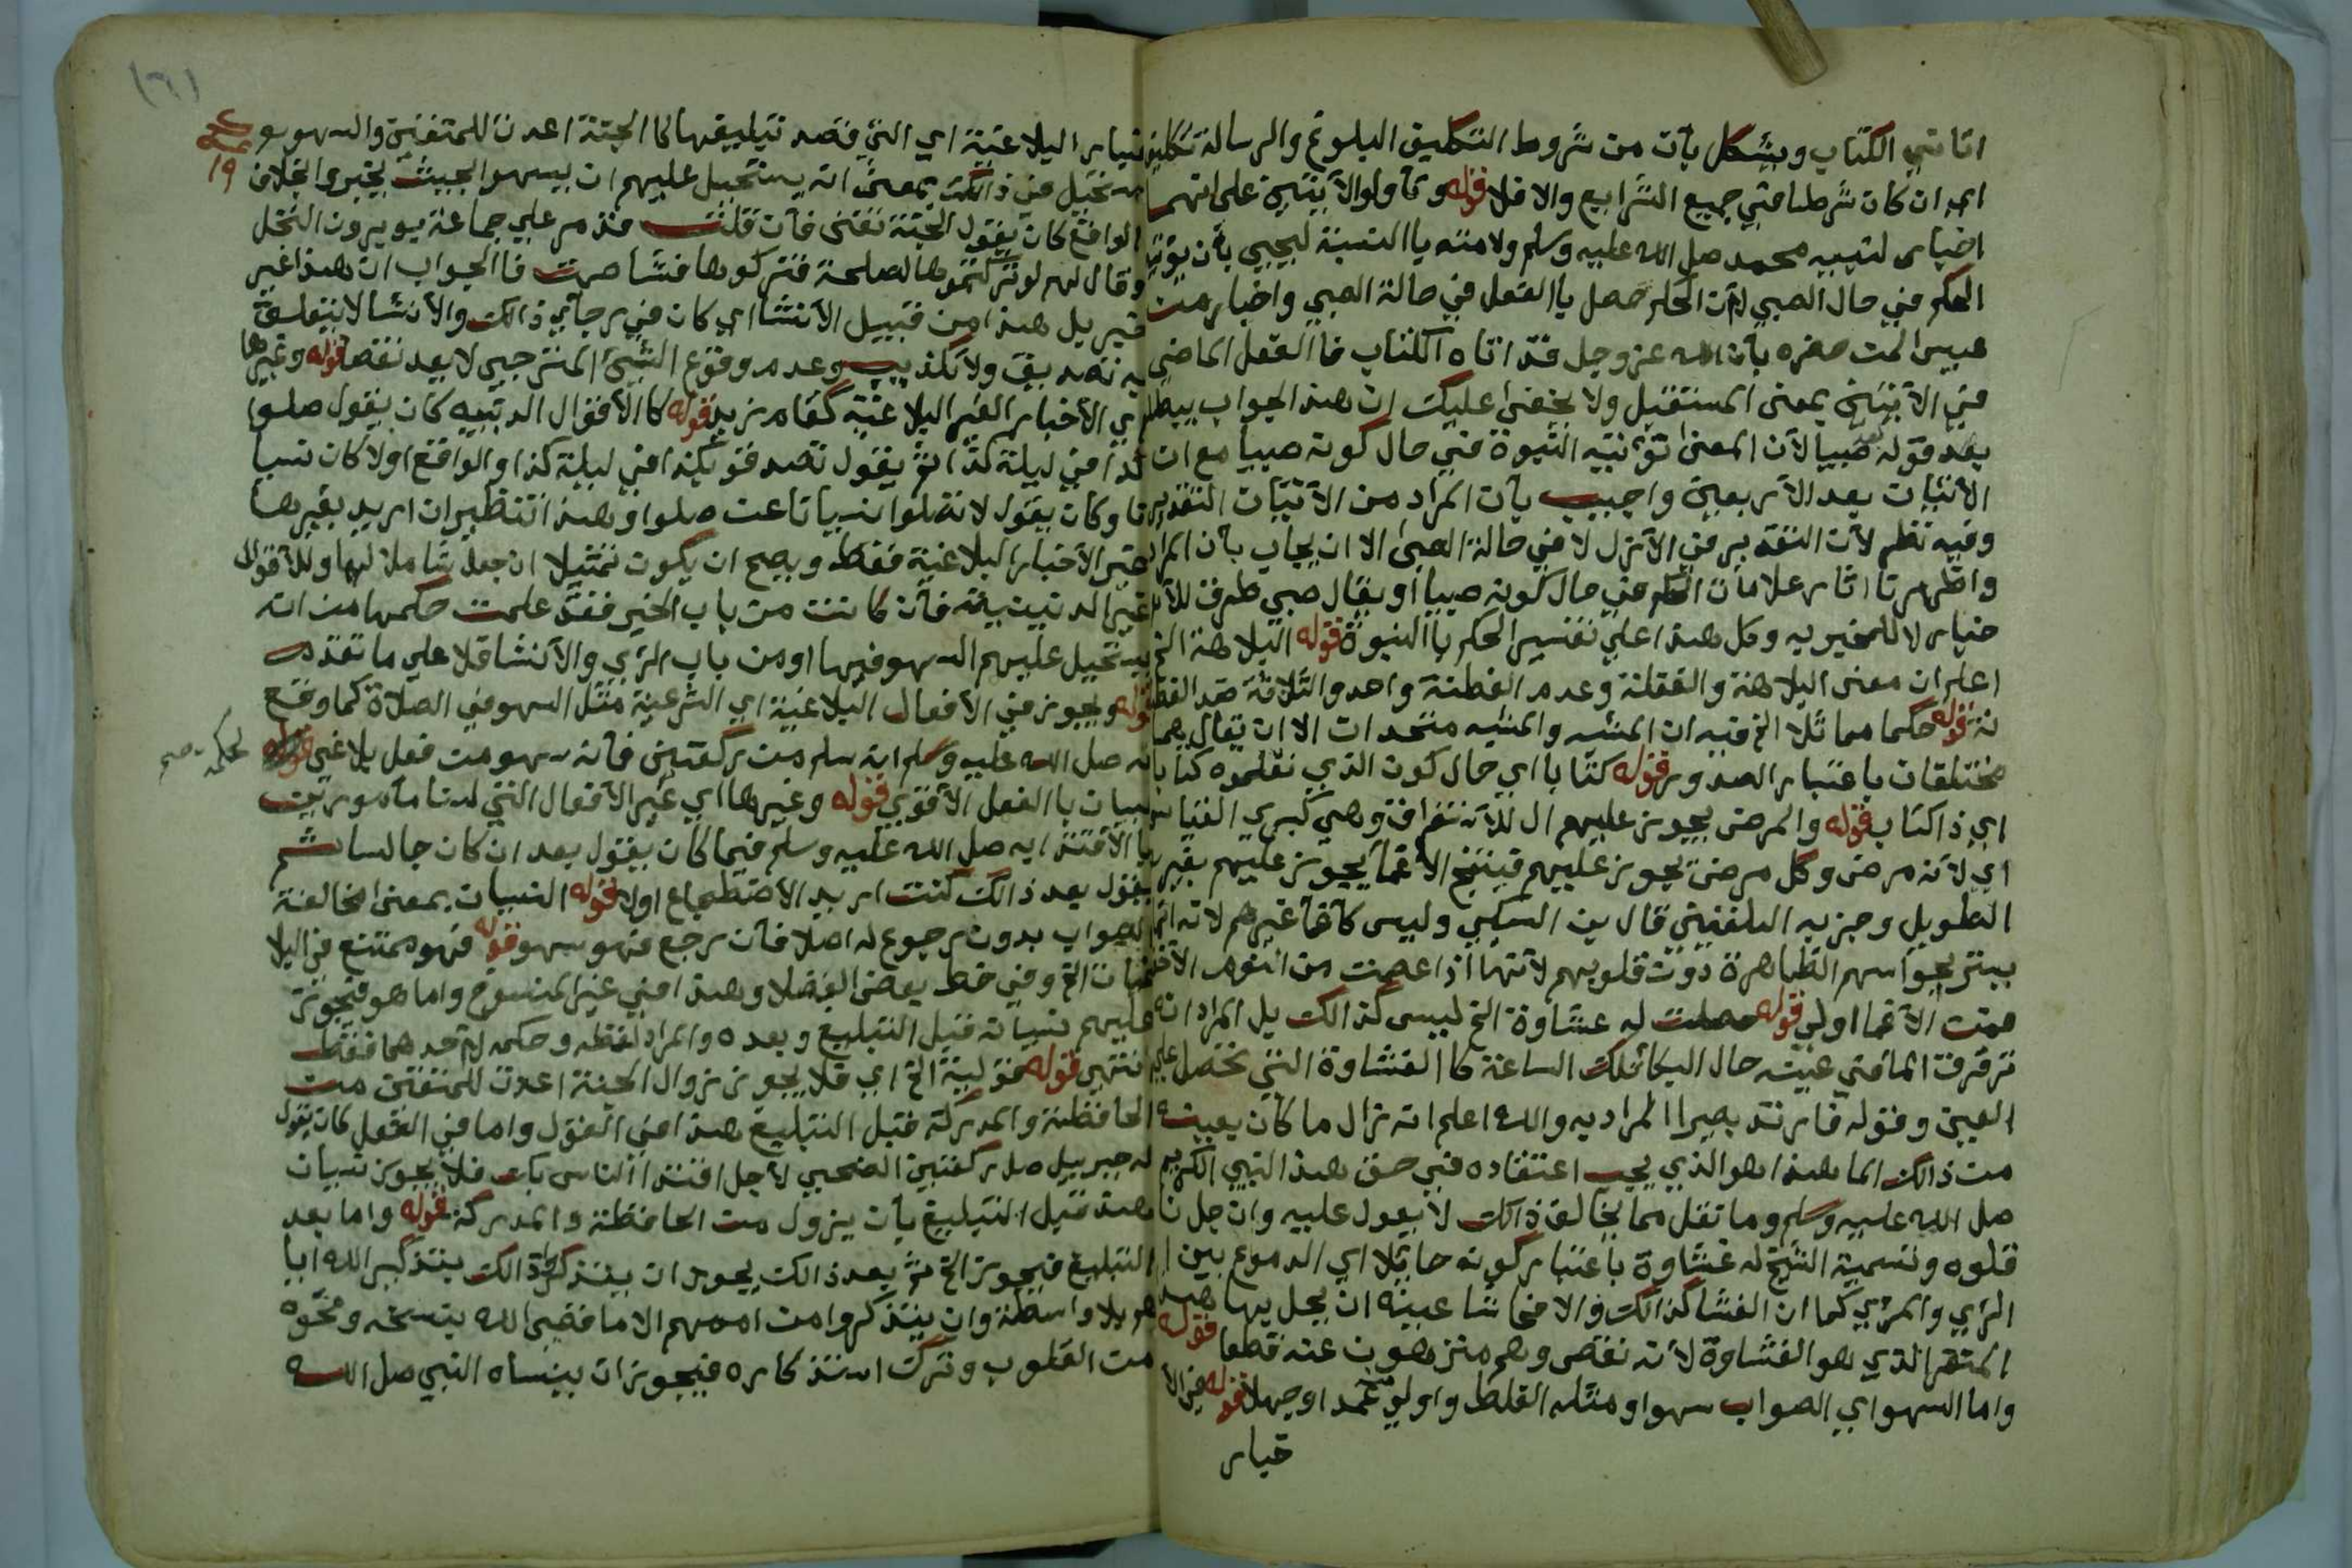 اتاني الكتاب ويشكل بأن من شروط التكليف البلوغ والرسالة تكليف
اي ان كان شرطا في جميع الشرايع والا فلا قوله وتأولوا الآيتين على انهما
اخبار لنبيه محمد صل الله عليه وسلم ولامته يا النسبة ليحيي بأن يؤتيه
الحكم في حال الصبي لأن الحكم حصل يا الفعل في حالة الصبي واخبار من
عيسى لمن حضره بأن الله عز وجل قد اتاه الكتاب فا الفعل الماضي
في الآيتين بمعنى المستقبل ولا يخفى عليك ان هذا الجواب يبطله
بعد قوله صبيا لأن المعنى نؤتيه النبوة في حال كونه صبيا مع ان
الاتيان بعد الأربعين واجيب بأن المراد من الأتيان التقدير
وفيه نظر لأن التقدير في الأزل لا في حالة الصبى الا ان يجاب بأن المراد
واظهرنا اثار علامات الحكم في حال كونه صبيا أو يقال صبي ظرف للأ
خبار لا للمخبر به وكل هذا على تفسير الحكم يا النبوة قوله البلاهة الخ
اعلم ان معنى البلاهة والغفلة وعدم الفطنة واحد والثلاثة ضد الفطا
نة قوله حكما مماثلا الخ فيه ان المشبه والمشبه متحدان الا ان يقال هما
مختلفان باعتبار الصدور قوله كتابا اي حال كون الذي نعلموه كتابا
اي ذا كتاب قوله والمرض يجوز عليهم ال للأستغراق وهي كبرى القياس
اي لأنه مرض وكل مرض يجوز عليهم فينتج الأغمأ يجوز عليهم بغير
الطويل وجزم به البلقيني قال بن السبكي وليس كأغمأ غيرهم لانه انما
يستر بحواسهم الظاهرة دون قلوبهم لأنها اذا عصمت من النوم الأخف
فمن الأغما اولى قوله حصلت له غشاوة الخ ليس كذالك بل المراد انه
ترقرق الما في عينه حال البكا تلك الساعة كا الغشاوة التي تحصل على
العين وقوله فارتد بصيرا المراد به والله اعلم انه زال ما كان بعينه
من ذالك الما هذا هو الذي يجب اعتقاده في حق هذا النبي الكريم
صل الله عليه وسلم وما نقل مما يخالف ذالك لا يعول عليه وان جل نا
قلوه وتسمية الشيخ له غشاوة باعتبار كونه حايلا اي الدموع بين ا
الرأي والمرئي كما ان الغشا كذالك والا فحاشا عينه ان يحل بها هذ
المتقر الذي هو الغشاوة لأنه نقص وهم منزهون عنه قطعا قوله
واما السهو اي الصواب سهوا ومثله الغلط واولى عمدا وجهلا قوله في الأ
خبار
خبار البلاغية اي التي قصد تبليغها كا الجنة اعدت للمتقين والسهو
مستحيل في ذالك بمعنى انه يستحيل عليهم ان يسهوا بحيث يخبروا بخلاف
الواقع كان يقول الجنة تفنى فأن قلت قد مر على جماعة يوبرون النخل
وقال لهم لو تركتموها لصلحت فتركوها فشاصت فا الجواب ان هذا غير
خبر بل هذا من قبيل الأنشا اي كان في رجأي ذالك والأنشا لا يتعلق
به تصديق ولا تكذيب وعدم وقوع الشيئ المترجي لا يعد نقصا قوله وغيرها
اي الأخبار الغير البلاغية كقام زيد قوله كا الأقوال الدنيية كان يقول صلوا
كذا في ليلة كذا ثم يقول تصدقو بكذا في ليلة كذا والواقع اولا كان نسيا
نا وكان يقول لا تصلوا نسيانا عن صلوا وهذا تنظير ان اريد بغيرها
غير الأخبار البلاغية فقط ويصح ان يكون تمثيلا ان جعل شاملا لها وللأقوال
الغير الدنييية فأن كانت من باب الخبر فقد علمت حكمها من انه
يستحيل عليهم السهو فيها او من باب الرأي والأنشا فلا على ما تقدم
قوله ويجوز في الأفعال البلاغية اي الشرعية مثل السهو في الصلاة كما وقع
له صل الله عليه وسلم انه سلم من ركعتين فأنه سهو من فعل بلاغي
لحكمة صح
لبيان با الفعل الأقوى قوله وغيرها اي غير الأفعال التي لسنا مأمورين
با الأقتدا به صل الله عليه وسلم فيها كان يقول بعد ان كان جالسا ثم
يقول بعد ذالك كنت اريد الأضطجاع اولا قوله النسيان بمعنى مخالفة
الصواب بدون رجوع له اصلا فأن رجع فهو سهو قوله فهو ممتنع في البلا
غيات الخ وفي خط بعض الفضلا وهذا في غير المنسوخ واما هو فيجوز
عليهم نسيانه قبل التبليغ وبعده والمراد لفظه وحكمه لأحدهما فقط
انتهى قوله قولية الخ اي فلا يجوز زوال الجنة اعدت للمتقين من
الحافظة والمدركة قبل التبليغ هذا في القول واما في الفعل كان يقول
له جبريل صل ركعتين الضحى لأجل اقتدا الناس بك فلا يجوز نسيان
هذه قبل التبليغ بأن يزول من الحافظة والمدركة قوله واما بعد
التبليغ فيجوز الخ ثم بعد ذالك يجوز ان يتذكروا ذالك بتذكير الله ايا
هم بلا واسطة وان يتذكروا من اممهم الا ما قضى الله بنسخه ومحوه
من القلوب وترك استذكاره فيجوز ان ينساه النبي صل الله
١٩
(٦١